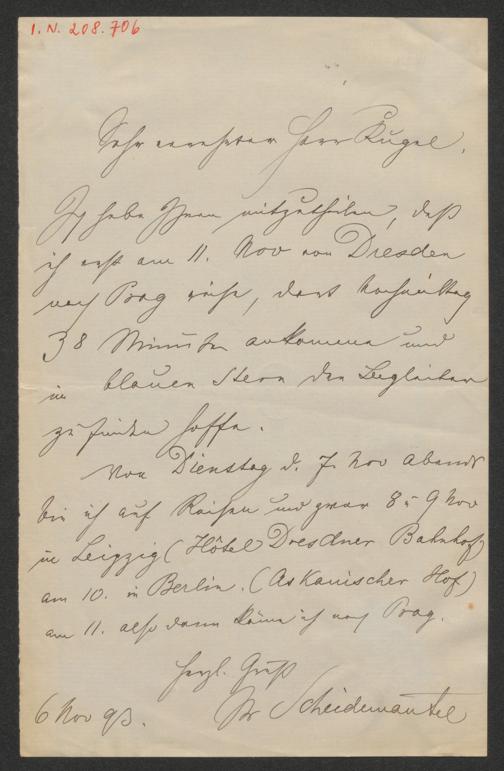 I. N. 208.706
Sehr verehrter Herr Kugel,
Ich habe Ihnen mitzutheilen, daß
ich erst am 11. Nov von Dresden
nach Prag reise, dort Nachmittag
38 Minuten ankomme und
im blauen Stern den Begleiter
zu finden hoffe.
Von Dienstag d. 7. Nov Abends
bin ich auf Reisen und zwar 8 u 9 Nov
in Leipzig (Hôtel Dresdner Bahnhof)
am 10. in Berlin. (Askanischer Hof)
am 11. also dann käme ich nach Prag.
Herzl. Gruß
6 Nov 93. Ihr Scheidemantel